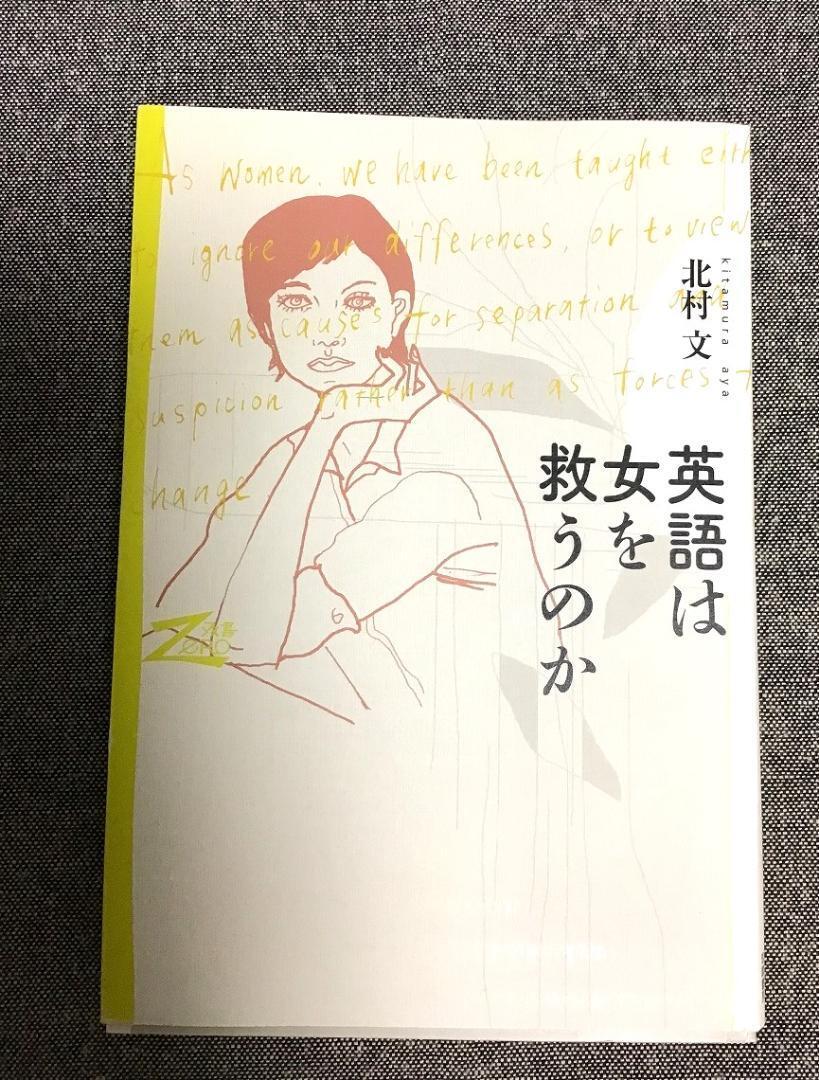 As Women, we have been taught eith
to ignore our differences, or to view
them as causes for separation and
suspicion rather than as forces
change
北村 文
kitamura aya
英語は
女を
救うのか
双書
Zero